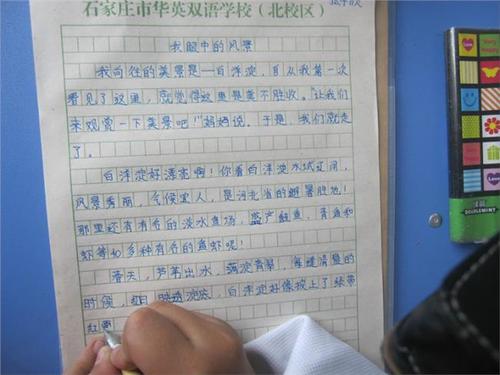 石家庄市华英双语学校（北校区）
我眼中的风景
我向往的美景是——白洋淀，自从我第一次
看见了这里，就觉得这里是美不胜收。“让我们
来观赏一下美景吧！”妈妈说。于是，我们就走
了。
白洋淀好漂亮啊！你看白洋淀水域辽阔，
风景秀丽，气候宜人，是河北省的避暑胜地！
那里还有有名的淡水鱼场，盛产鲑鱼，青鱼和
虾等如多种有名的鱼虾呢！
春天，芦苇出水，满淀青翠，每逢清晨的
时候，红日映透淀底，白洋淀好像披上了纱带
红
DOUBLEMINT